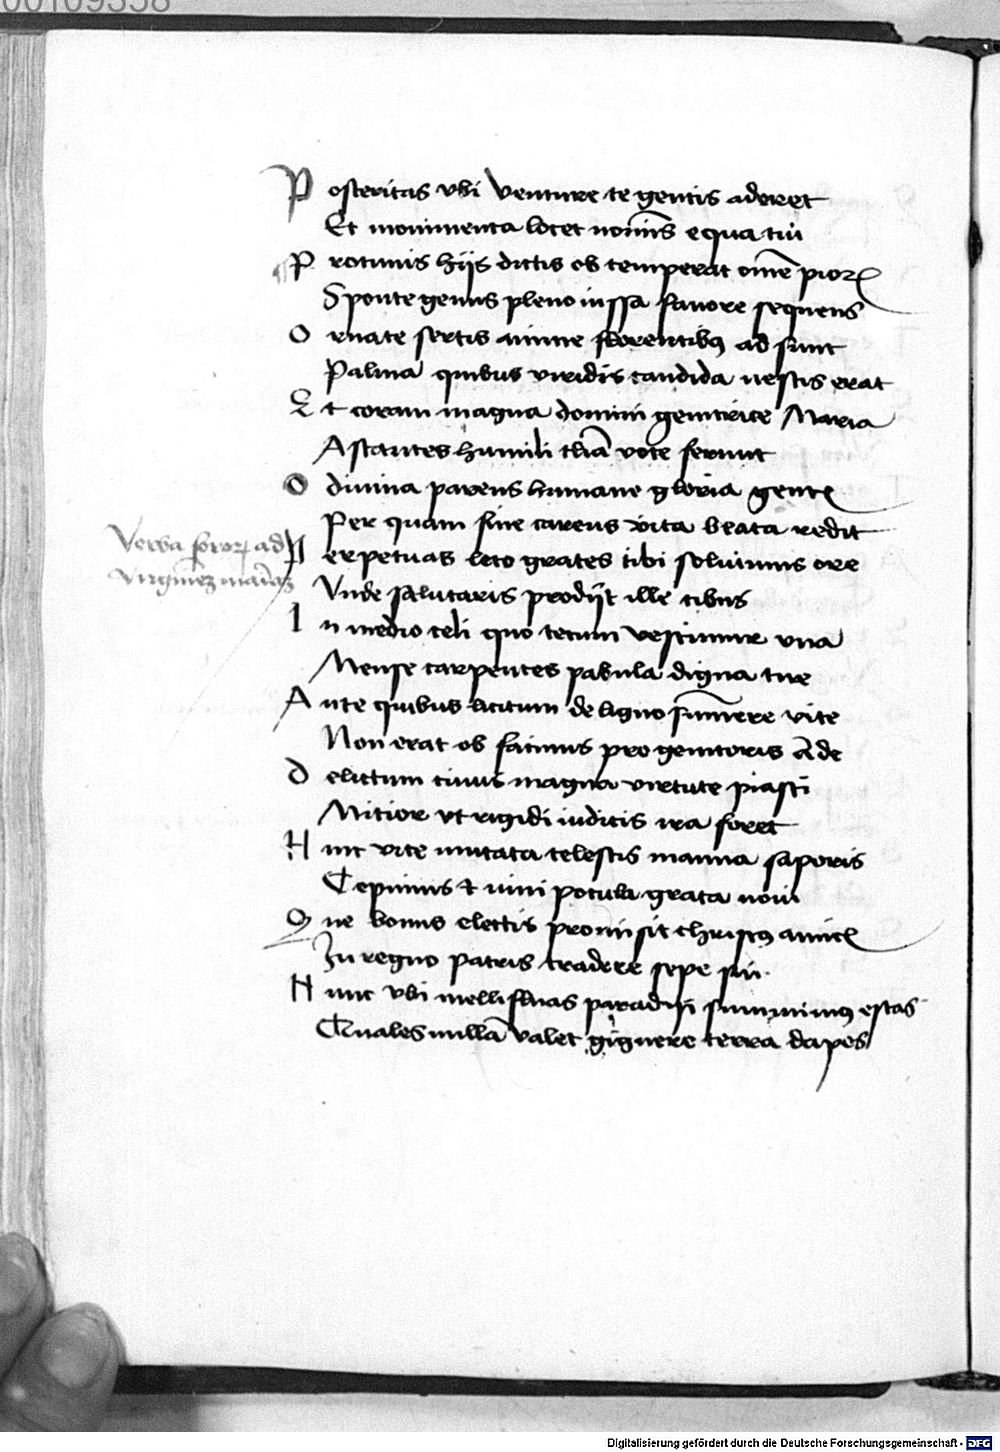 00109358
Posteritas vbi venture te gentis adoret
Et monimenta locet nominis equa tui
Protinus hijs dictis obtemperat omne piorum
Sponte genus pleno iussa fauore sequens
Ornate sertis niuee florentibus adsunt
Palma quibus viridis candida uestis erat
Et coram magna domini genitrice Maria
Astantes humili talia voce ferunt
O diuina parens humane gloria gentis
Per quam sine carens vita beata redit
Verba soror ad
virginez mariaz
Perpetuas leto grates tibi soluimus ore
Vnde salutaris prodijt ille cibus
In medio celi quo tecum vescimur vna
Mense carpentes pabula digna tue
Ante quibus licitum de ligno summere vite
Non erat ob facinus progenitoris Ade
Delictum cuius magna virtute piasti
Mitior vt rigidi iudicis ira foret
Hinc vite mutata celestis manna saporis
Cepimus et uini pocula grata noui
Que bonus electis promisit christus amicis
In regno patris tradere sepe sui
Hinc vbi mellifluas paradisi summimus escas
Quales nullam valet gignere terra dapes
Digitalisierung gefördert durch die Deutsche Forschungsgemeinschaft - DFG